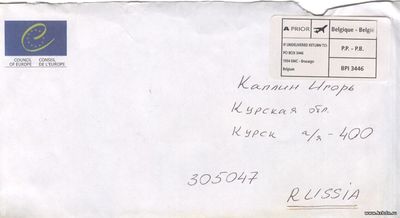 COUNCIL OF EUROPE
CONSEIL DE L'EUROPE
A PRIOR
Belgique - België
IF UNDELIVERED RETURN TO:
PO BOX 3446
1934 EMC - Brucargo
Belgium
P.P. - P.B.
BPI 3446
Каплин Игорь
Курская обл.
Курск а/я-400
305047
RUSSIA